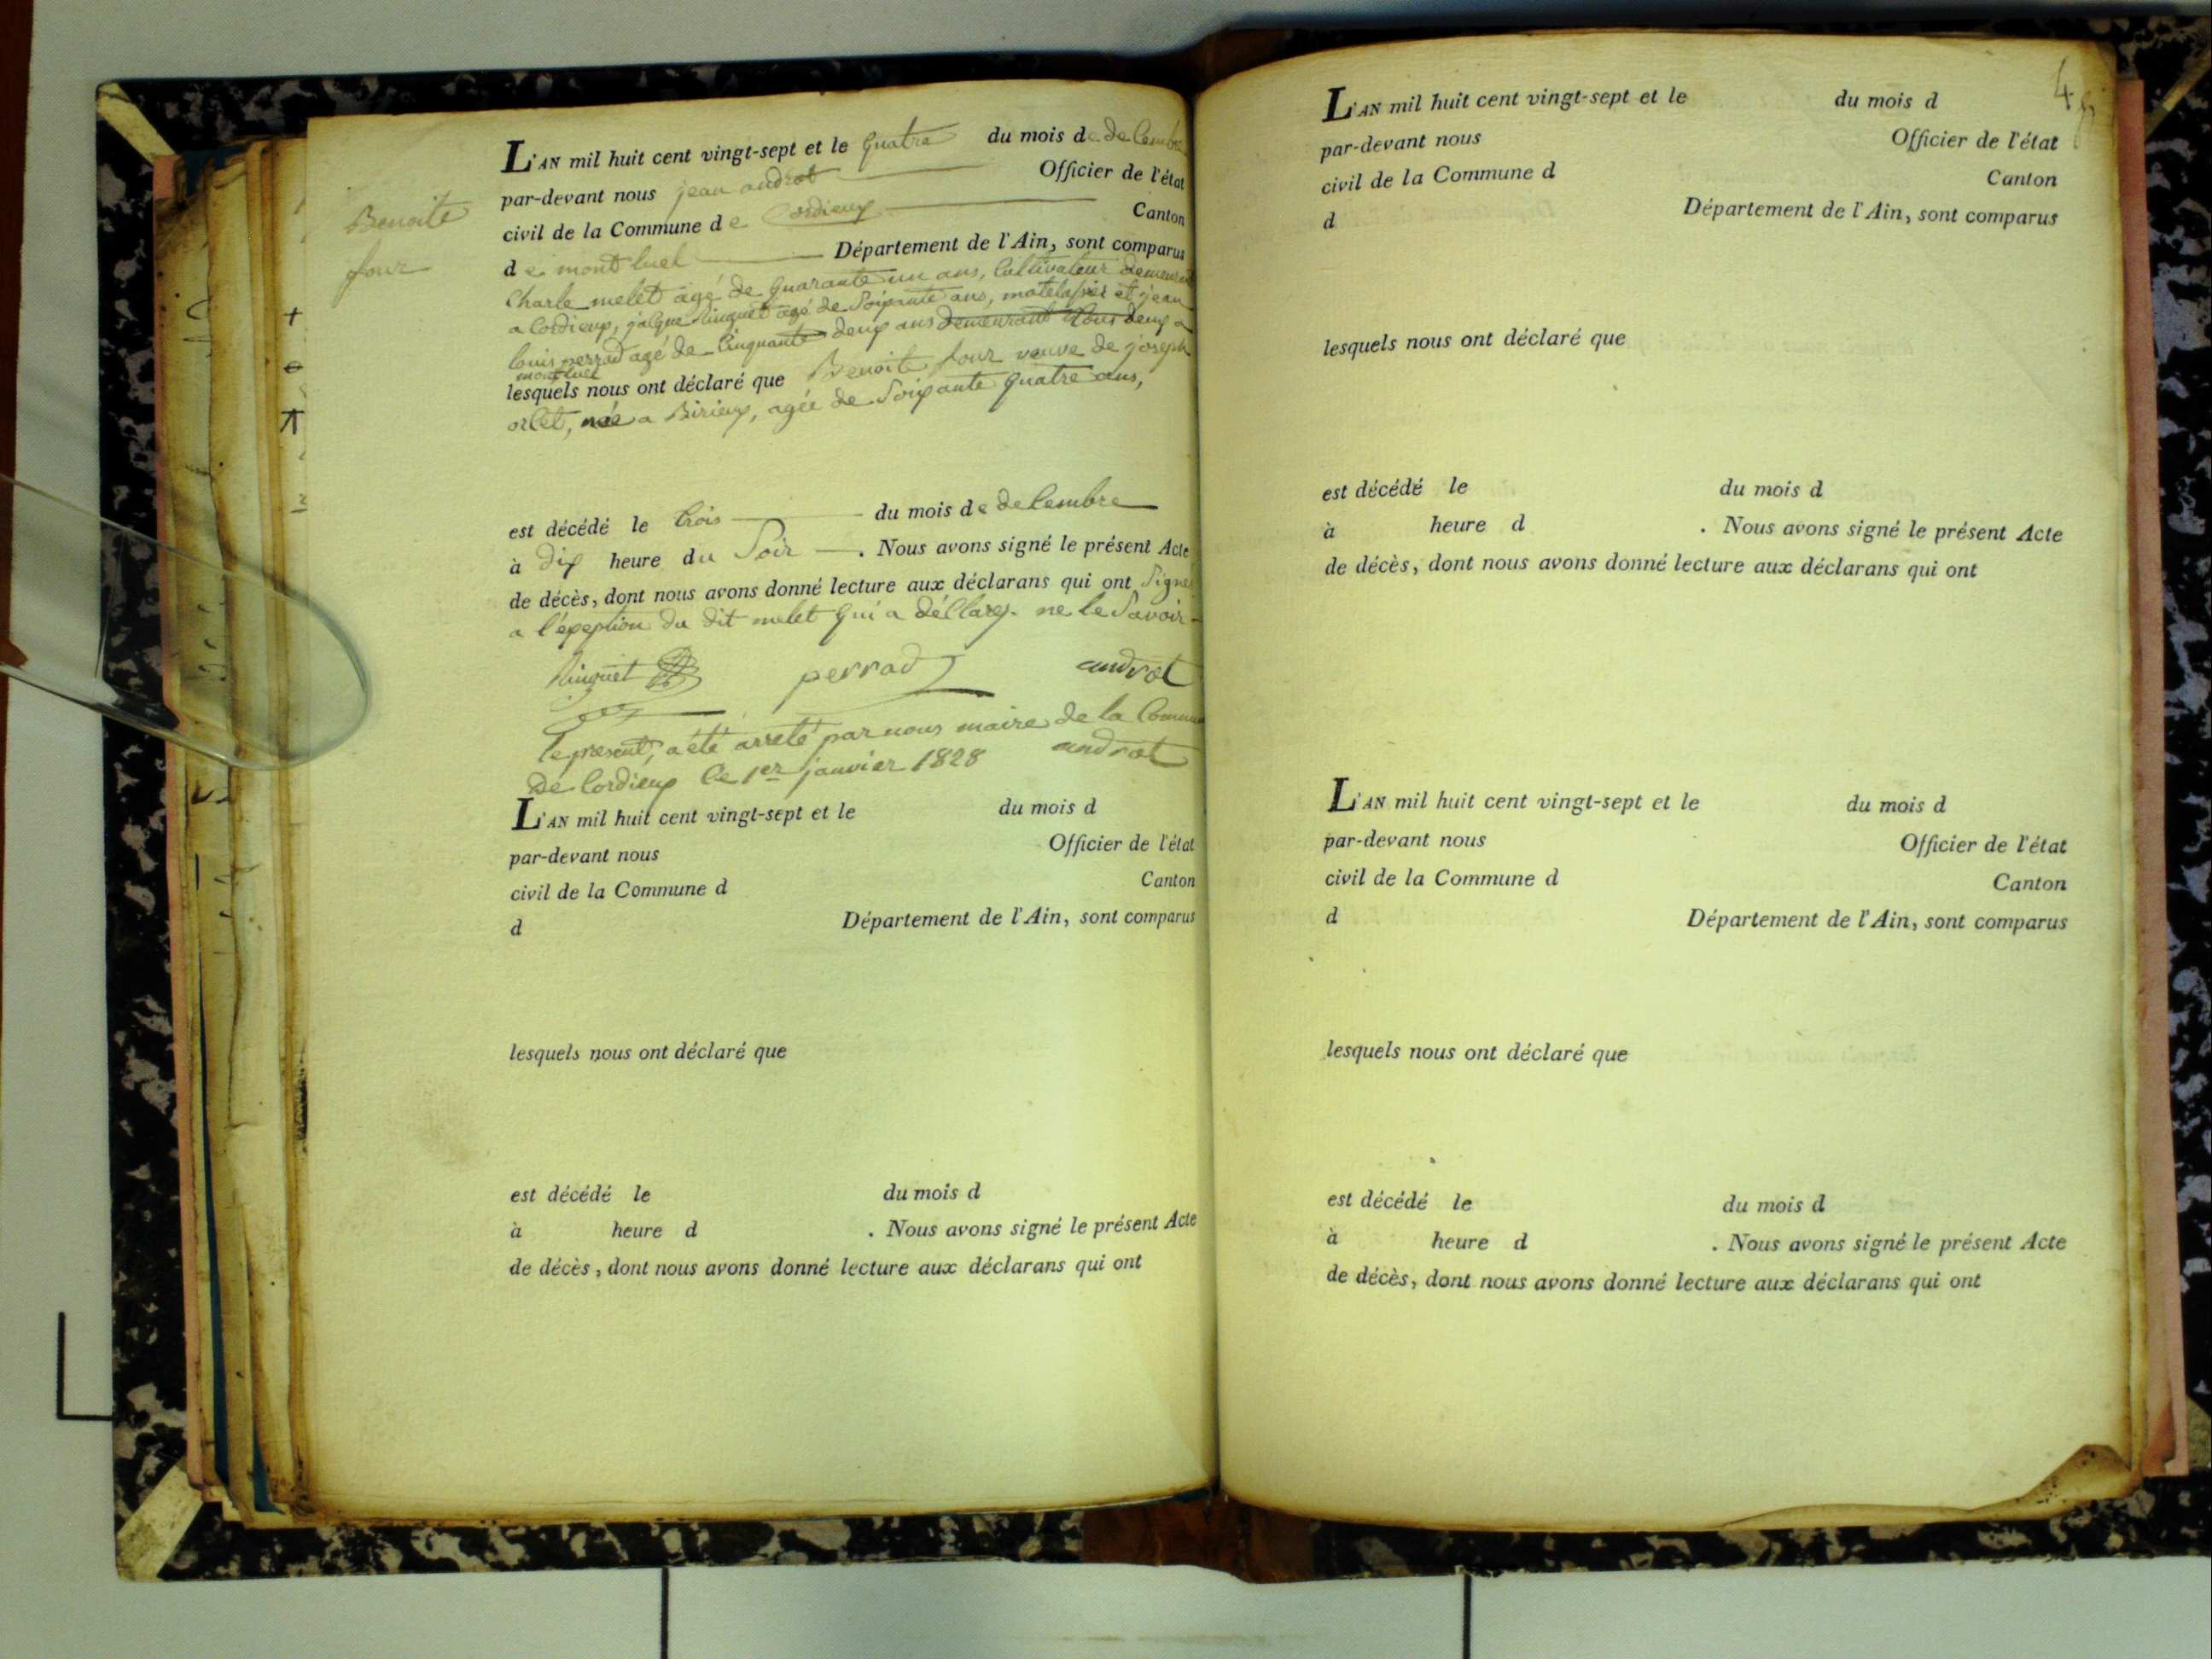 Benoite
four
L'AN mil huit cent vingt-sept et le quatre du mois de decembre
par-devant nous jean androt Officier de l'état
civil de la Commune de Cordieux Canton
de montluel Département de l'Ain, sont comparus
Charle melet agé de quarante un ans, Cultivateur demeurant
a Cordieux, jacque agé de soixante ans, matelassier et jean
louis perrad agé de cinquante deux ans demeurant tous deux a
montluel
lesquels nous ont déclaré que Benoite four veuve de joseph
orlet, née a Birieux, agée de soixante quatre ans,
est décédé le trois du mois de decembre
à dix heure du soir . Nous avons signé le présent Acte
de décès, dont nous avons donné lecture aux déclarans qui ont signé
a l'exeption du dit melet qui a déclaré ne le savoir
perrad androt
le present, a été arreté par nous maire de la Commune
De Cordieux le 1er janvier 1828 androt
L'AN mil huit cent vingt-sept et le du mois d
par-devant nous Officier de l'état
civil de la Commune d Canton
d Département de l'Ain, sont comparus
lesquels nous ont déclaré que
est décédé le du mois d
à heure d . Nous avons signé le présent Acte
de décès, dont nous avons donné lecture aux déclarans qui ont
4
L'AN mil huit cent vingt-sept et le du mois d
par-devant nous Officier de l'état
civil de la Commune d Canton
d Département de l'Ain, sont comparus
lesquels nous ont déclaré que
est décédé le du mois d
à heure d . Nous avons signé le présent Acte
de décès, dont nous avons donné lecture aux déclarans qui ont
L'AN mil huit cent vingt-sept et le du mois d
par-devant nous Officier de l'état
civil de la Commune d Canton
d Département de l'Ain, sont comparus
lesquels nous ont déclaré que
est décédé le du mois d
à heure d . Nous avons signé le présent Acte
de décès, dont nous avons donné lecture aux déclarans qui ont